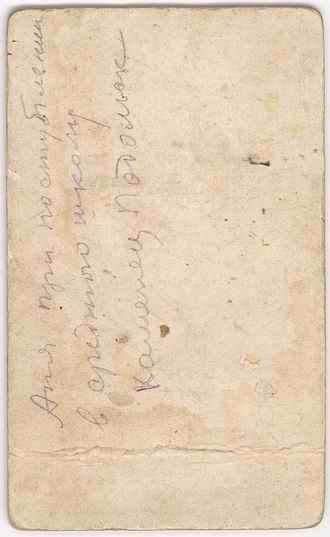 Аня при поступлении
в среднюю школу
Каменец Подольск